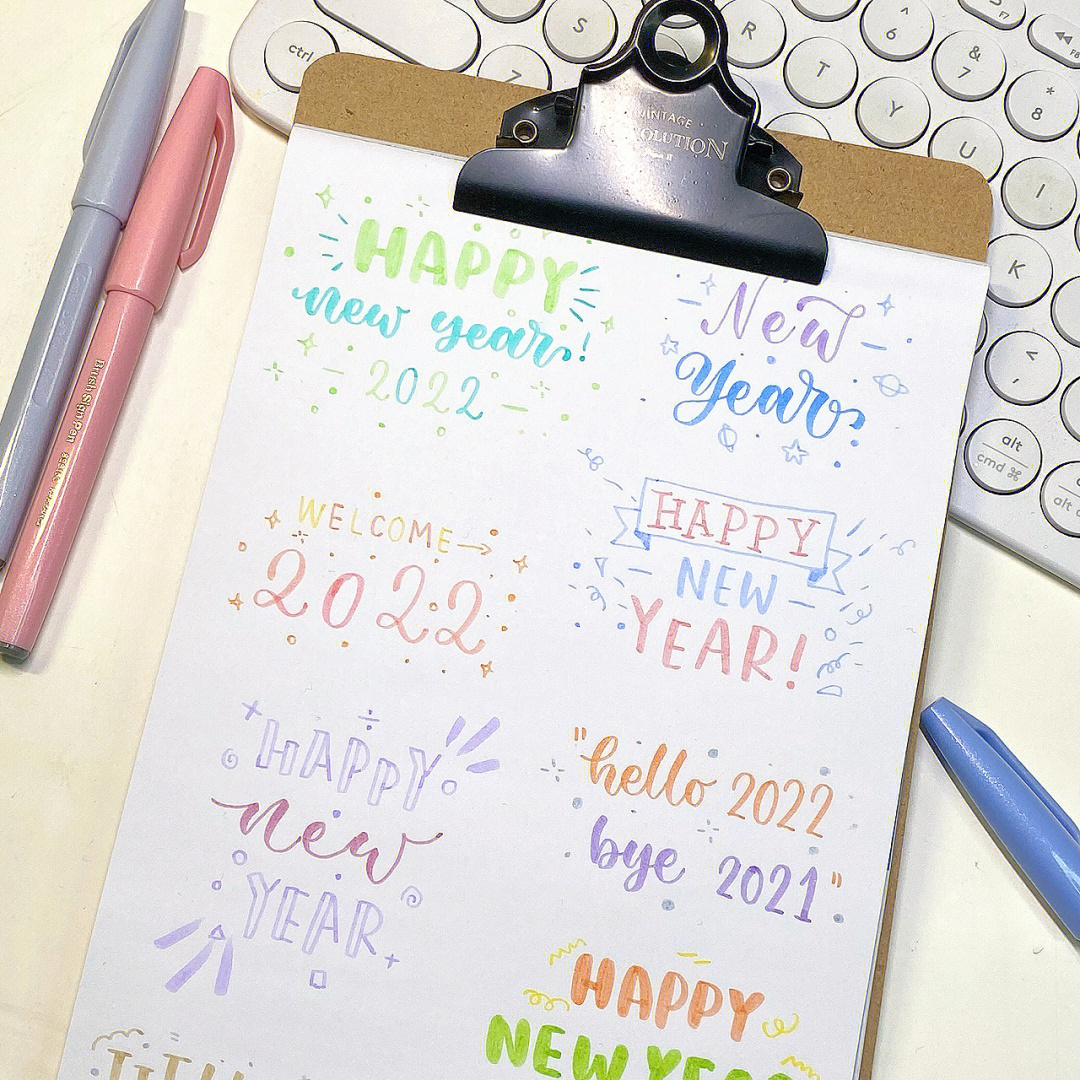 HAPPY
new year!
2022
New
Year
WELCOME→
2022
HAPPY
NEW
YEAR!
HAPPY
new
YEAR
"hello 2022
bye 2021"
HAPPY
NEW YEAR
VINTAGE
REVOLUTION
Brush Sign Pen
ctrl
S
Z
R
T
Y
U
I
K
^
6
&
7
*
8
F7
F8
<
,
alt
cmd ⌘
alt